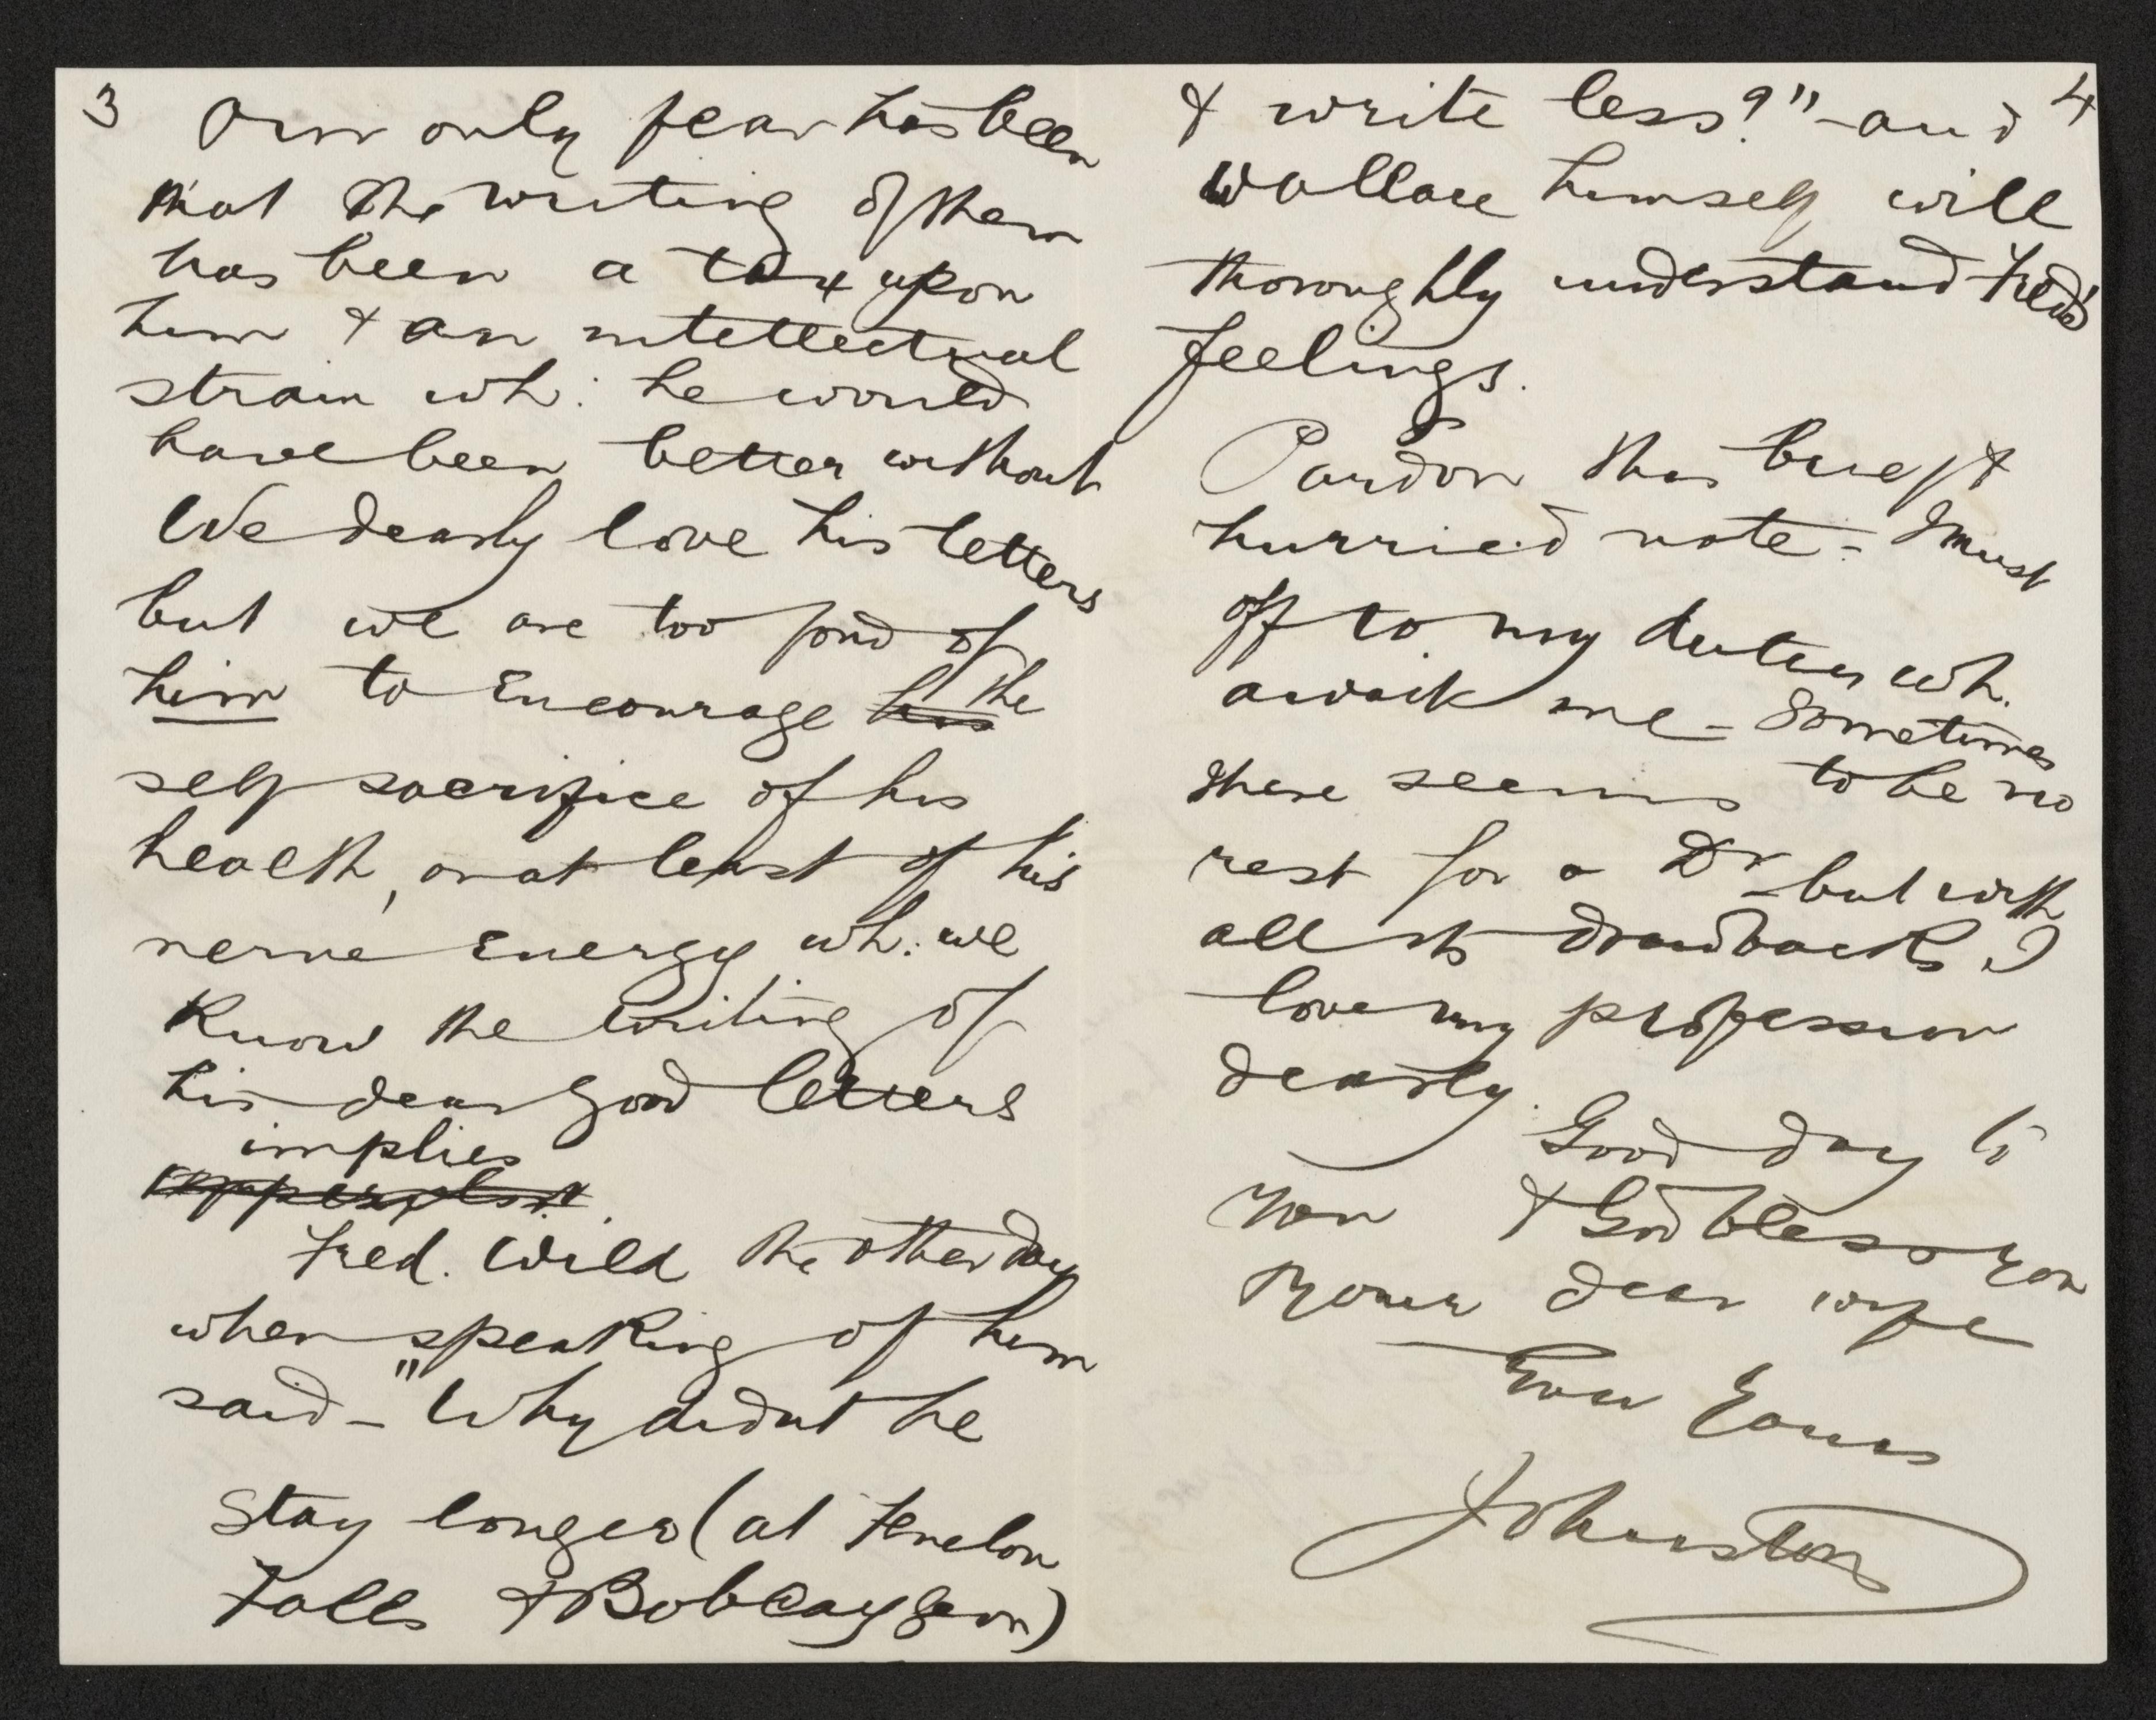 3
Our only fear has been
that the writing of them
has been a tax upon
him & an intellectual
strain wh: he would
have been better without
We dearly love his letters
but we are too fond of
him to encourage his the
self sacrifice of his
health, or at least of his
nerve energy wh: we
know the writing of
his dear good letters
implies
Fred. Wild the other day
when speaking of him
said - "Why didnt he
stay longer (at Fenelon
Falls & Bobcaygeon)
4
& write less?" - and
Wallace himself will
thoroughly understand Fred's
feelings.
Pardon this brief &
hurried note - I must
off to my duties wh.
await me - Sometimes
there seems to be no
rest for a Dr - but with
all its drawbacks I
love my profession
dearly.
Good day to
you & God bless you
& your dear wife
Ever Yours
Johnston